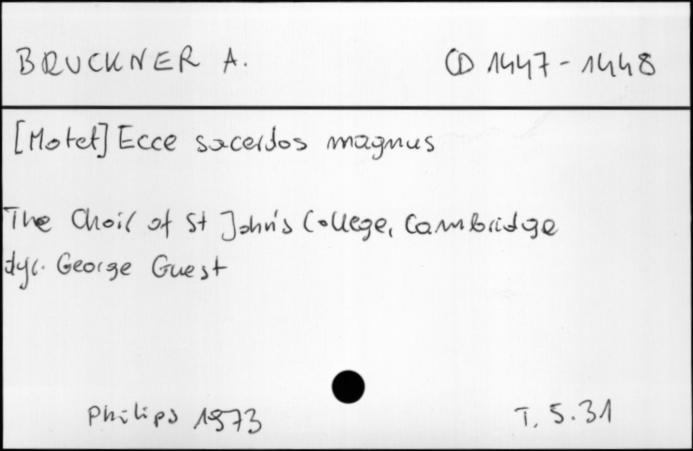 BRUCKNER A. CD 1447-1448
[Motet] Ecce sacerdos magnus
The Choir of St John's College, Cambridge
dyr. George Guest
Philips 1973 T. 5.31